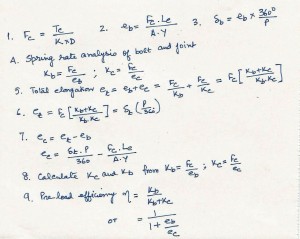 1. F_c = T_c / (K × D) 2. e_b = F_c . L_e / (A . Y) 3. δ_b = e_b × 360° / P
4. Spring rate analysis of bolt and joint
K_b = F_c / e_b ; K_c = F_c / e_c
5. Total elongation e_t = e_b + e_c = F_c / K_b + F_c / K_c = F_c [ (K_b + K_c) / (K_b . K_c) ]
6. e_t = F_c [ (K_b + K_c) / (K_b . K_c) ] = δ_t ( P / 360 )
7. e_c = e_t - e_b
e_c = δ_t . P / 360 - F_c . L_e / (A . Y)
8. Calculate K_c and K_b from K_b = F_c / e_b ; K_c = F_c / e_c
9. Pre-load efficiency η = K_b / (K_b + K_c)
or = 1 / (1 + e_b / e_c)